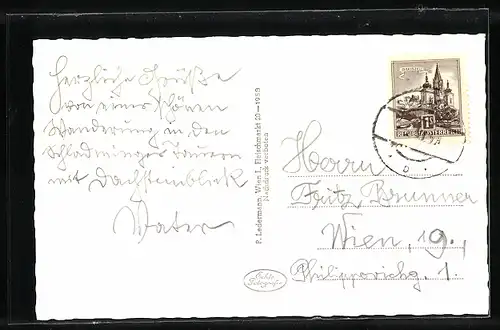 Herzliche Grüße
von einer schönen
Wanderung in den
Schladminger Tauern
mit Dachsteinblick
Vater
P. Ledermann, Wien I, Fleischmarkt 20—1959
Nachdruck verboten
Echte
Fotografie
Herrn
Fritz Brunner
Wien, 19.,
Philippovichg. 1.